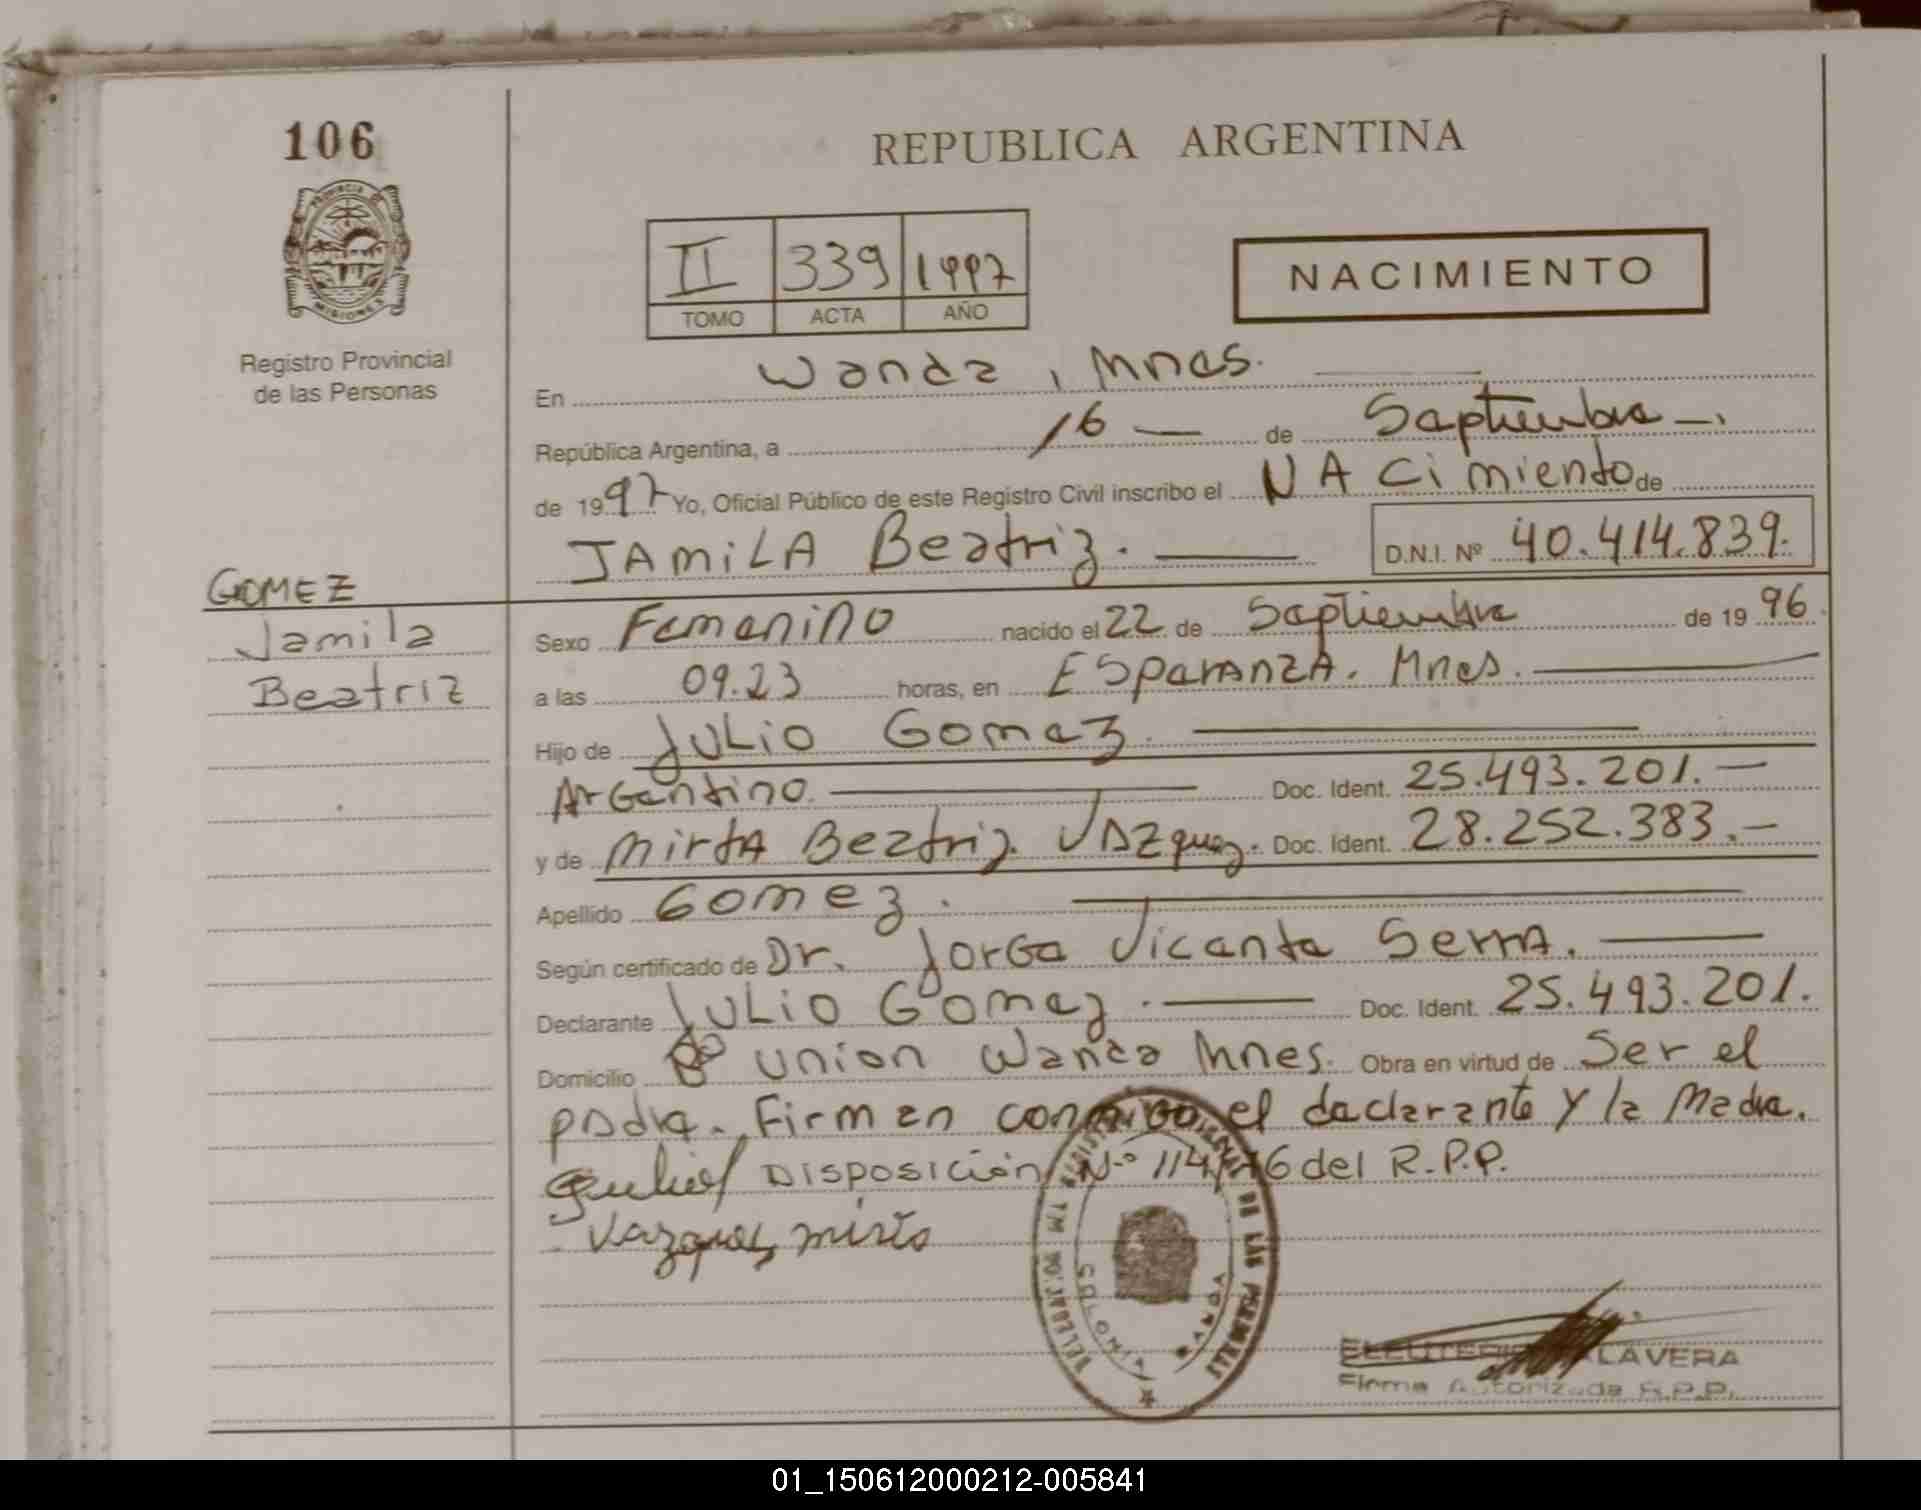 106
PROVINCIA DE
MISIONES
Registro Provincial
de las Personas
REPUBLICA ARGENTINA
II 339 1997
TOMO ACTA AÑO
NACIMIENTO
En Wanda, Mnes.
República Argentina, a 16 — de Septiembre —.
de 1997 Yo, Oficial Público de este Registro Civil inscribo el NACimiento de
JAMiLA Beatriz. D.N.I. Nº 40.414.839.
GOMEZ
Jamila
Beatriz
Sexo Femenino nacido el 22 de Septiembre de 1996.
a las 09.23 horas, en ESperANZA. Mnes.
Hijo de JULio Gomez.
ArGentino. Doc. Ident. 25.493.201.—
y de MirtA Beatriz Vazquez. Doc. Ident. 28.252.383.—
Apellido Gomez.
Según certificado de Dr. JorGe Vicente SerrA.
Declarante JULIO Gomez. Doc. Ident. 25.493.201.
Domicilio Bº union Wanda Mnes. Obra en virtud de Ser el
padre. Firman conmigo el declarante y la Madre.
Disposición N.º 114/76 del R.P.P.
Vazquez mirta
DE LAS PERSONAS
WANDA
ELEUTERIO LAVERA
Firma Autorizada R.P.P.
01_150612000212-005841